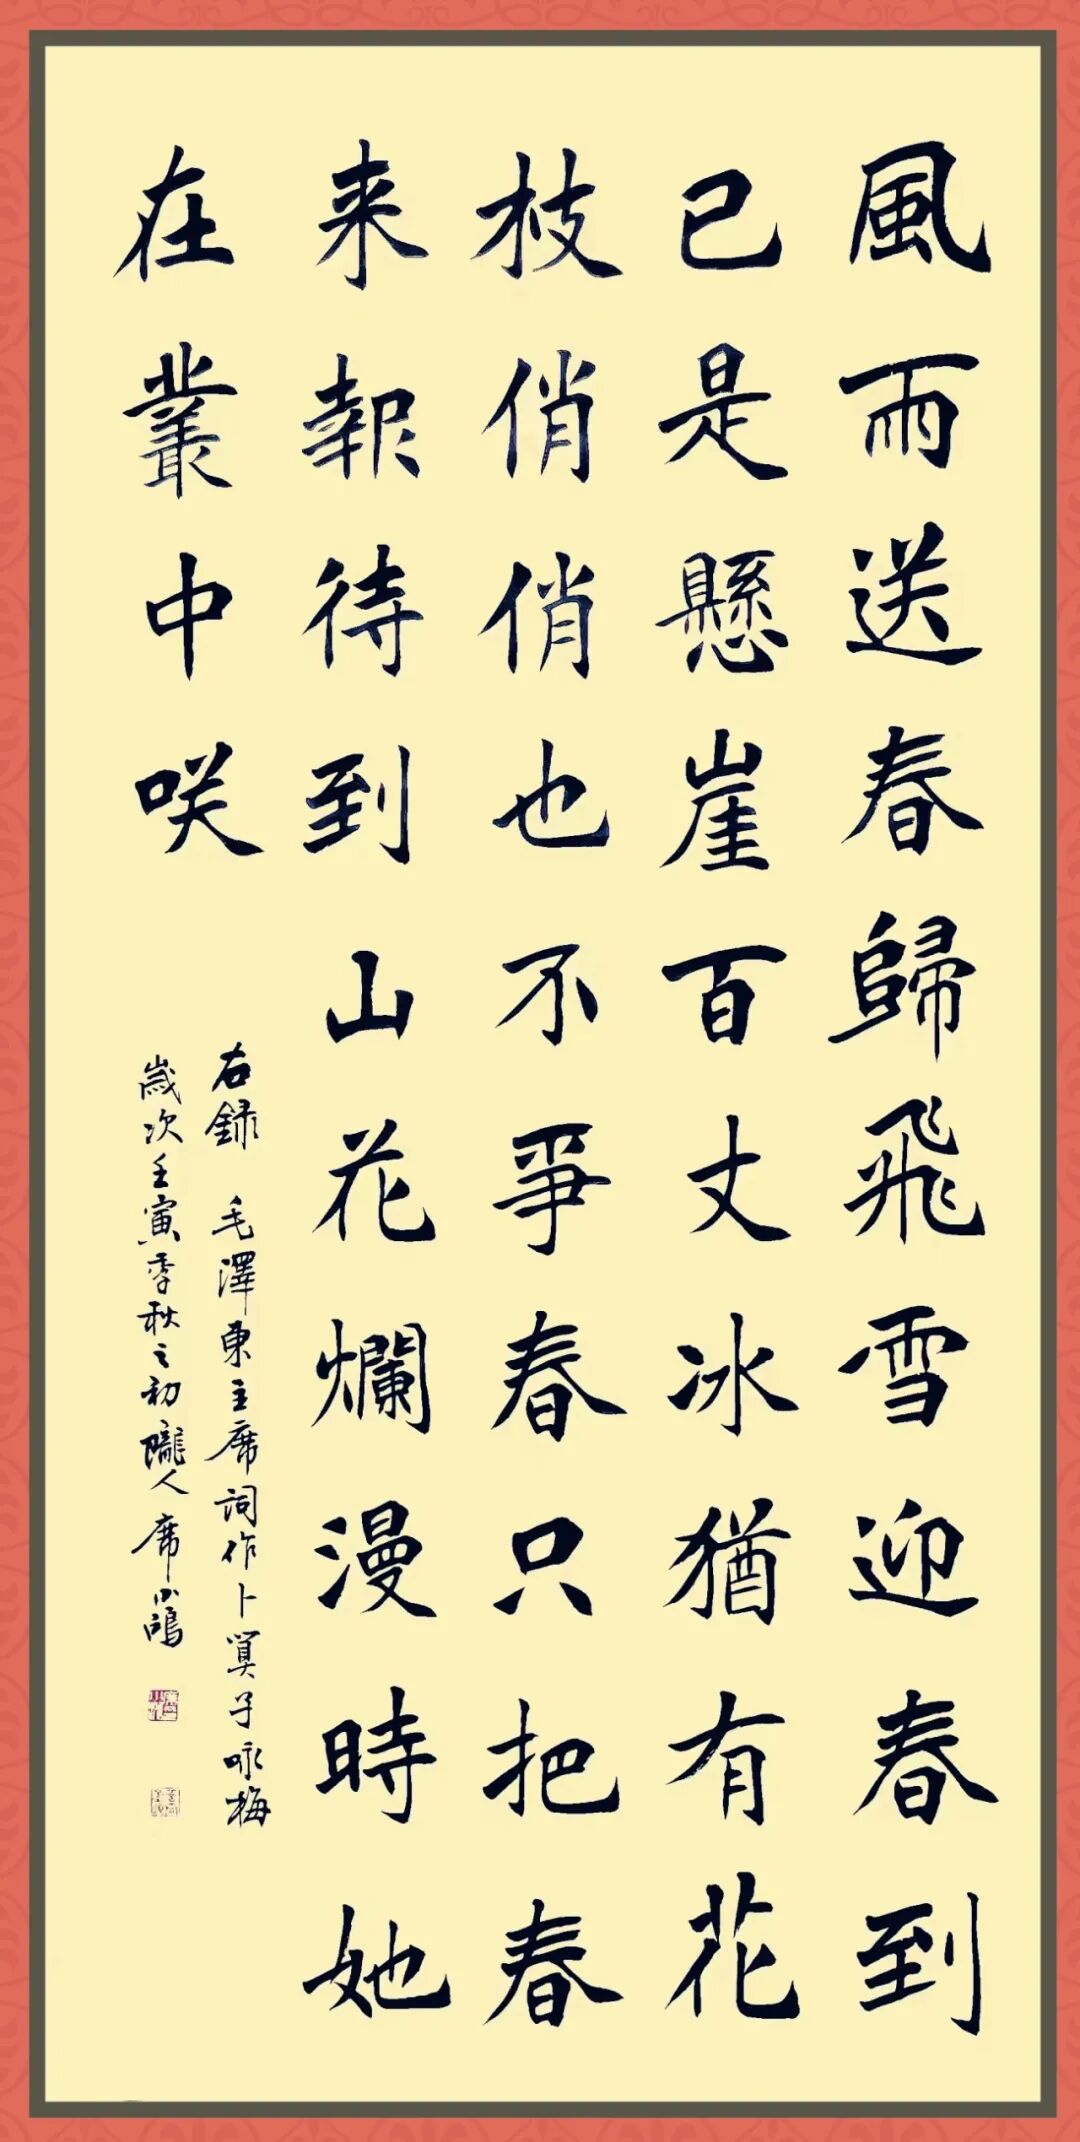 風雨送春歸飛雪迎春到
已是懸崖百丈冰猶有花
枝俏俏也不爭春只把春
来報待到山花爛漫時她
在叢中咲
右錄 毛澤東主席詞作卜算子咏梅
歲次壬寅季秋之初隴人席小鴻